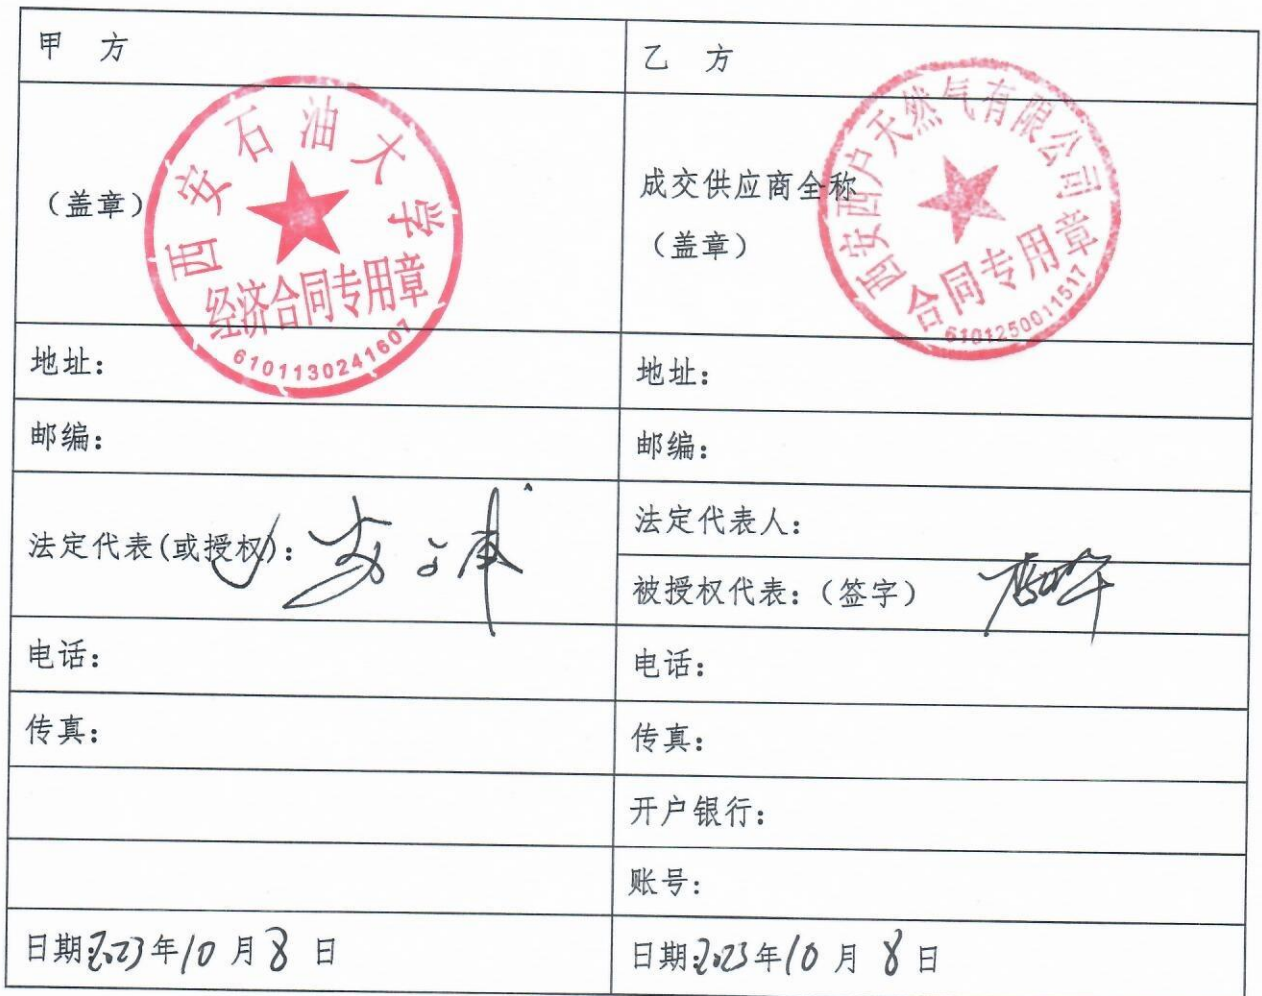 甲 方
乙 方
西安石油大学
经济合同专用章
6101130241607
（盖章）
西安西户天然气有限公司
合同专用章
6101250011517
成交供应商全称
（盖章）
地址：
地址：
邮编：
邮编：
法定代表(或授权)：
法定代表人：
被授权代表：（签字）
电话：
电话：
传真：
传真：
开户银行：
账号：
日期:2023年10月8日
日期:2023年10月8日